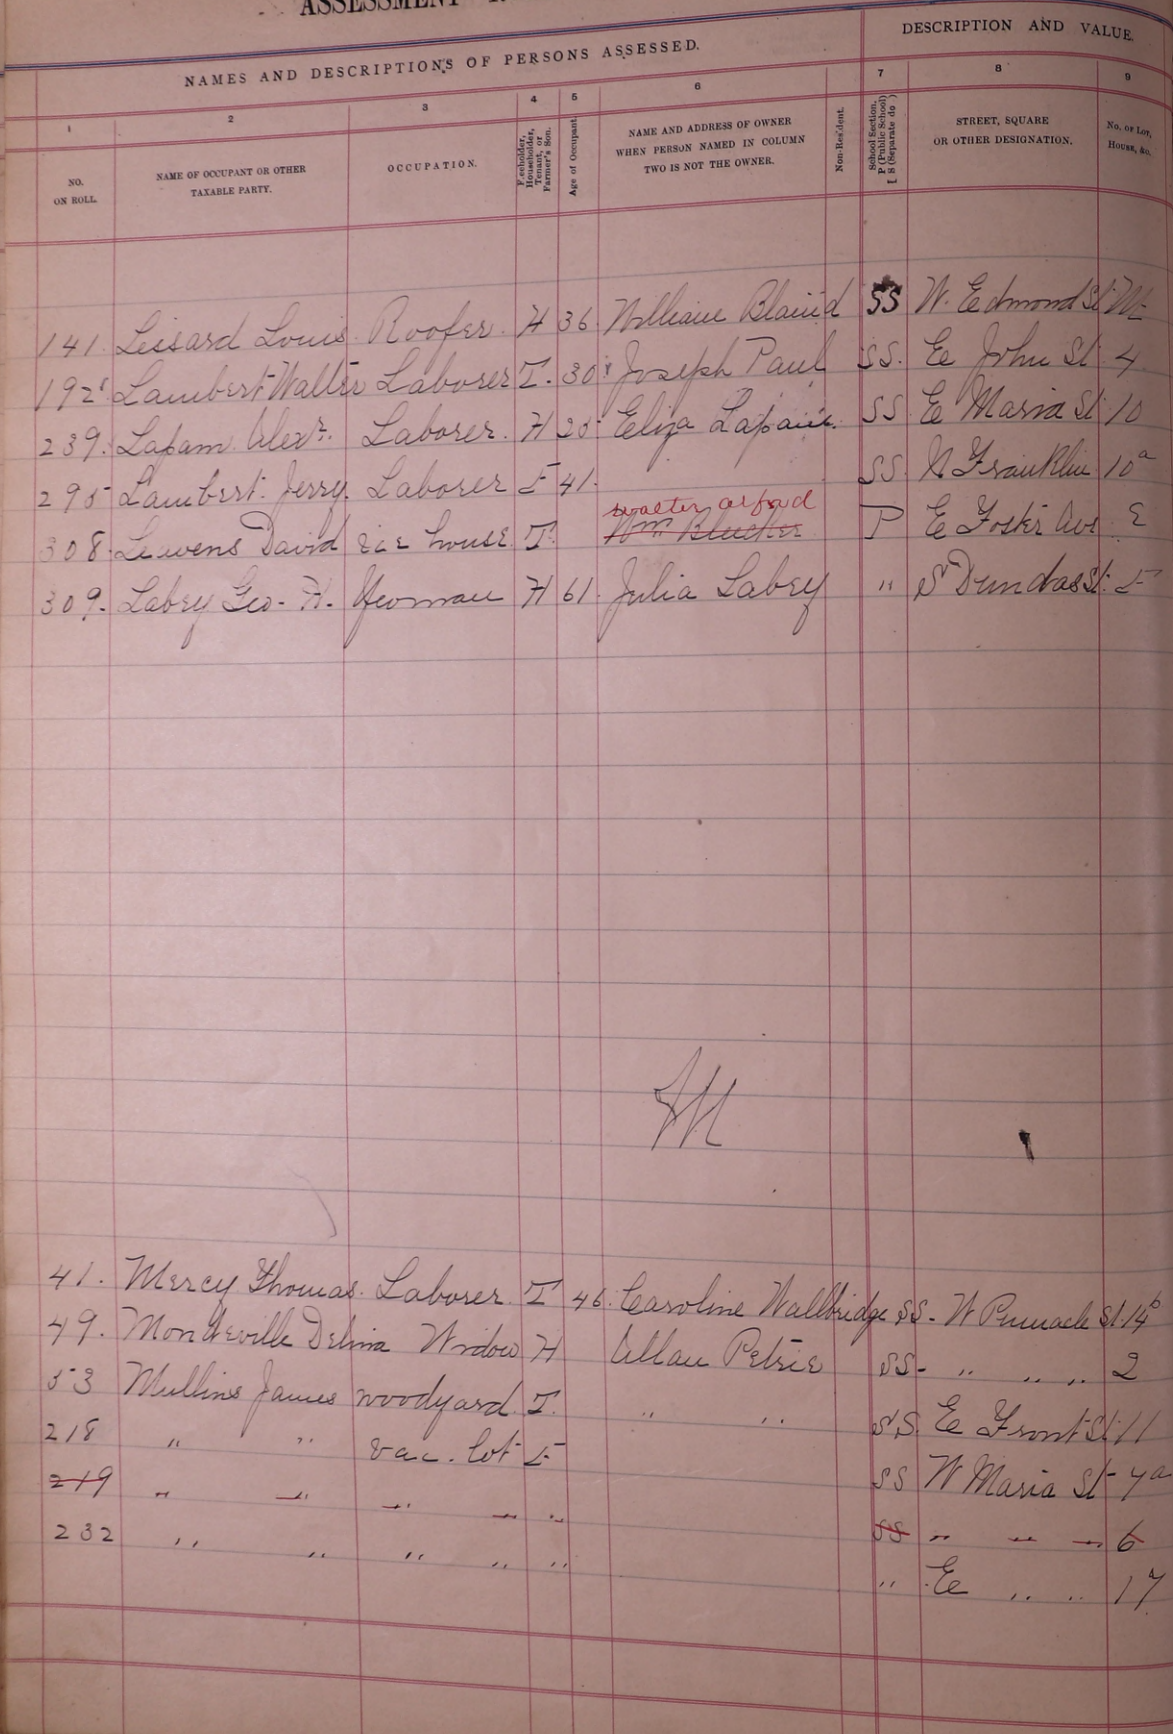 ASSESSMENT
NAMES AND DESCRIPTIONS OF PERSONS ASSESSED.
DESCRIPTION AND VALUE.
1 2 3 4 5 6 7 8 9
NO. ON ROLL.
NAME OF OCCUPANT OR OTHER TAXABLE PARTY.
OCCUPATION.
Freeholder, Householder, Tenant, or Farmer's Son.
Age of Occupant.
NAME AND ADDRESS OF OWNER WHEN PERSON NAMED IN COLUMN TWO IS NOT THE OWNER.
Non-Resident.
School Section, P (Public School) S (Separate do )
STREET, SQUARE OR OTHER DESIGNATION.
No. of Lot, House, &c.
141. Lessard Louis Roofer. H 36 William Blaind SS W. Edmond St
192 Lambert Walter Laborer T. 30 Joseph Paul SS. Ee John St 4
239. Lapam Alexr. Laborer. H 25 Eliza Lapam. SS E Maria St 10
295 Lambert. Jerry. Laborer F 41. SS. N Franklin 10a
walter alford
308. Lewens David ice house T. Wm Blucher P E Foster Ave E
309. Labey Geo. H. Yeoman H 61. Julia Labey " S Dundas St. F
M
41. Mercy Thomas. Laborer T 46. Caroline Wallbridge SS. W Pinnacle St. 14b
49. Mondeville Delina Widow H Allan Petrie SS. " " " 2
53 Mullins James woodyard T. " " SS. Ee Front St. 11
218 " " vac. lot F SS W Maria St 7a
219 " " " " " SS " " " 6
232 " " " " " " Ee " " 17